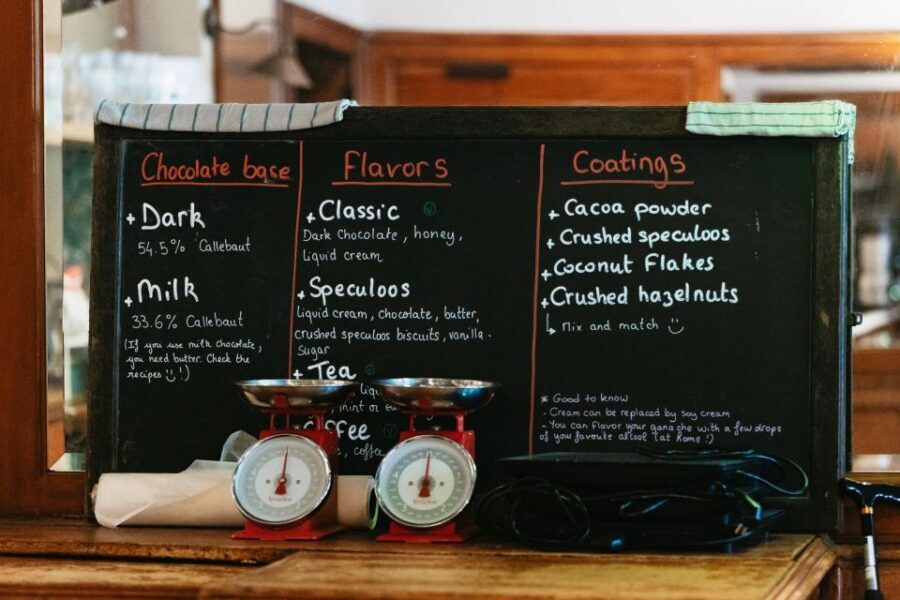 Chocolate base
+ Dark
54.5% Callebaut
+ Milk
33.6% Callebaut
(If you use milk chocolate,
you need butter. Check the
recipes !)
Flavors
+ Classic
Dark Chocolate, honey,
Liquid cream
+ Speculoos
liquid cream, chocolate, butter,
crushed speculoos biscuits, vanilla -
Sugar
+ Tea
liq
mint or
Coatings
+ Cacoa powder
+ Crushed speculoos
+ Coconut Flakes
+ Crushed hazelnuts
Mix and match
* Good to know
- Cream can be replaced by soy cream
- You can flavor your ganache with a few drops
of your favorite alcool (at home !)